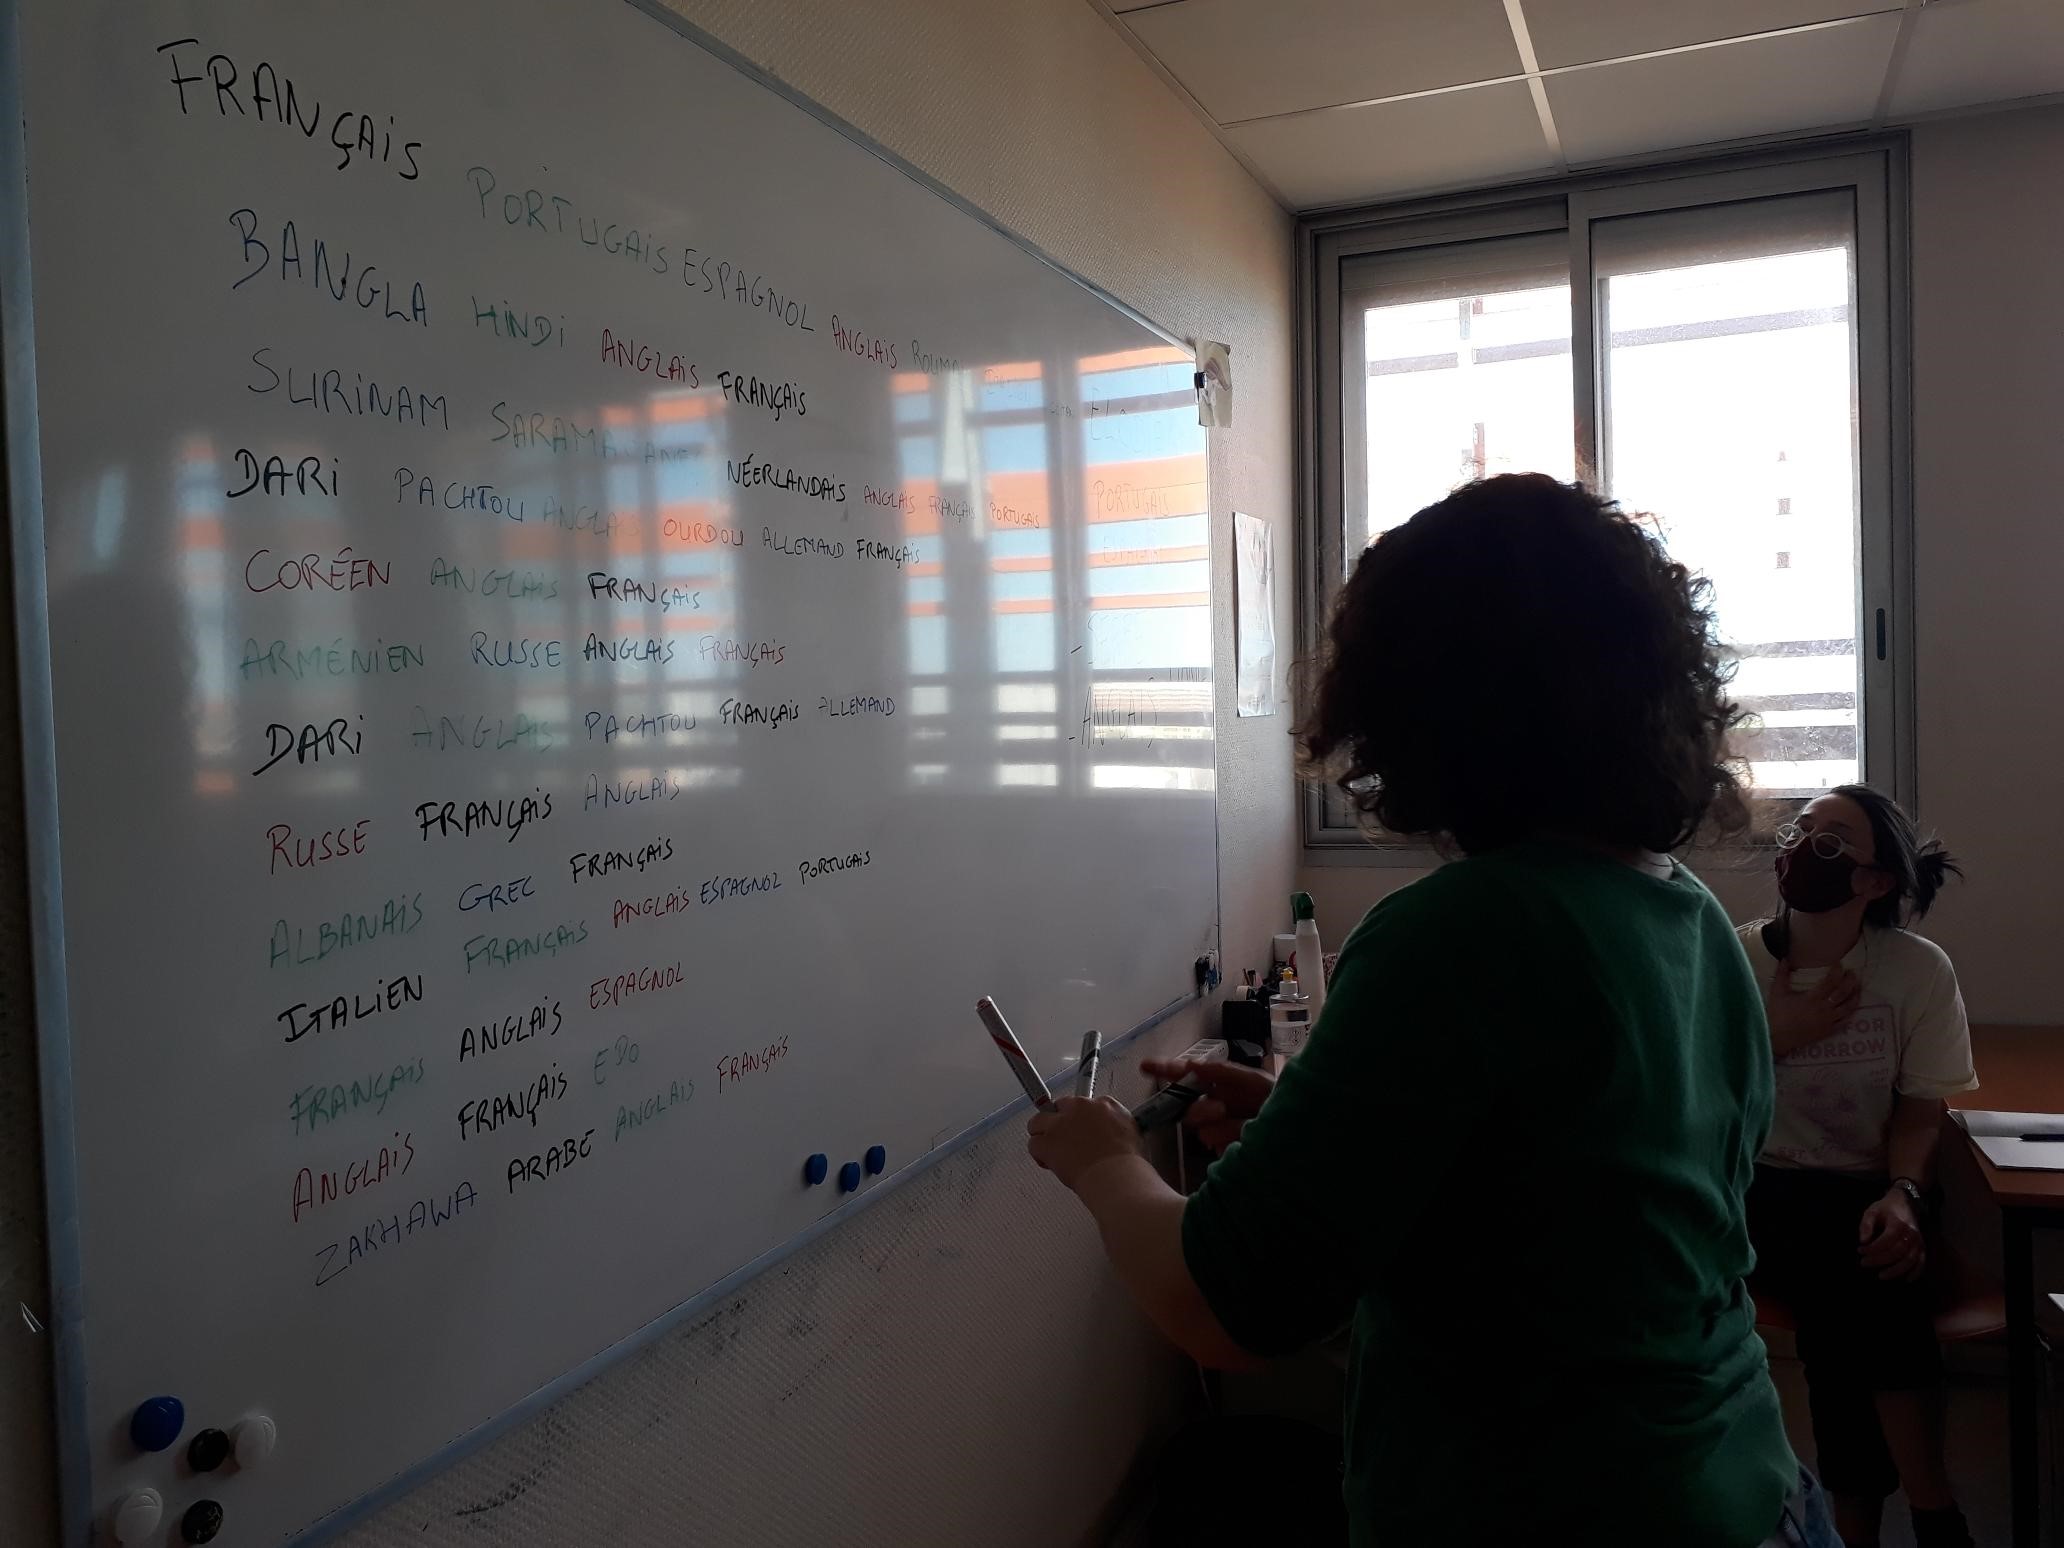 FRANÇAIS PORTUGAIS ESPAGNOL ANGLAIS
BANGLA HINDI ANGLAIS FRANÇAIS
SURINAM NÉERLANDAIS ANGLAIS FRANÇAIS PORTUGAIS
DARI PACHTOU ANGLAIS OURDOU ALLEMAND FRANÇAIS
CORÉEN ANGLAIS FRANÇAIS
ARMÉNIEN RUSSE ANGLAIS FRANÇAIS
DARI ANGLAIS PACHTOU FRANÇAIS ALLEMAND
RUSSE FRANÇAIS ANGLAIS
ALBANAIS GREC FRANÇAIS
ITALIEN FRANÇAIS ANGLAIS ESPAGNOL PORTUGAIS
FRANÇAIS ANGLAIS ESPAGNOL
ANGLAIS FRANÇAIS EDO
ZAKHAWA ARABE ANGLAIS FRANÇAIS
PORTUGAIS
- ANGLAIS
FOR
MORROW